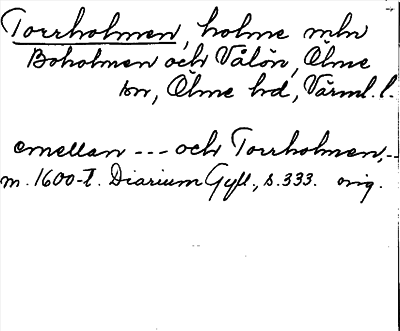 Torrholmen, holme mln
Boholmen och Vålön, Ölme
sn, Ölme hd, Värml. l.
emellan --- och Torrholmen,--
m. 1600-t. Diarium Gyll., s.333. orig.